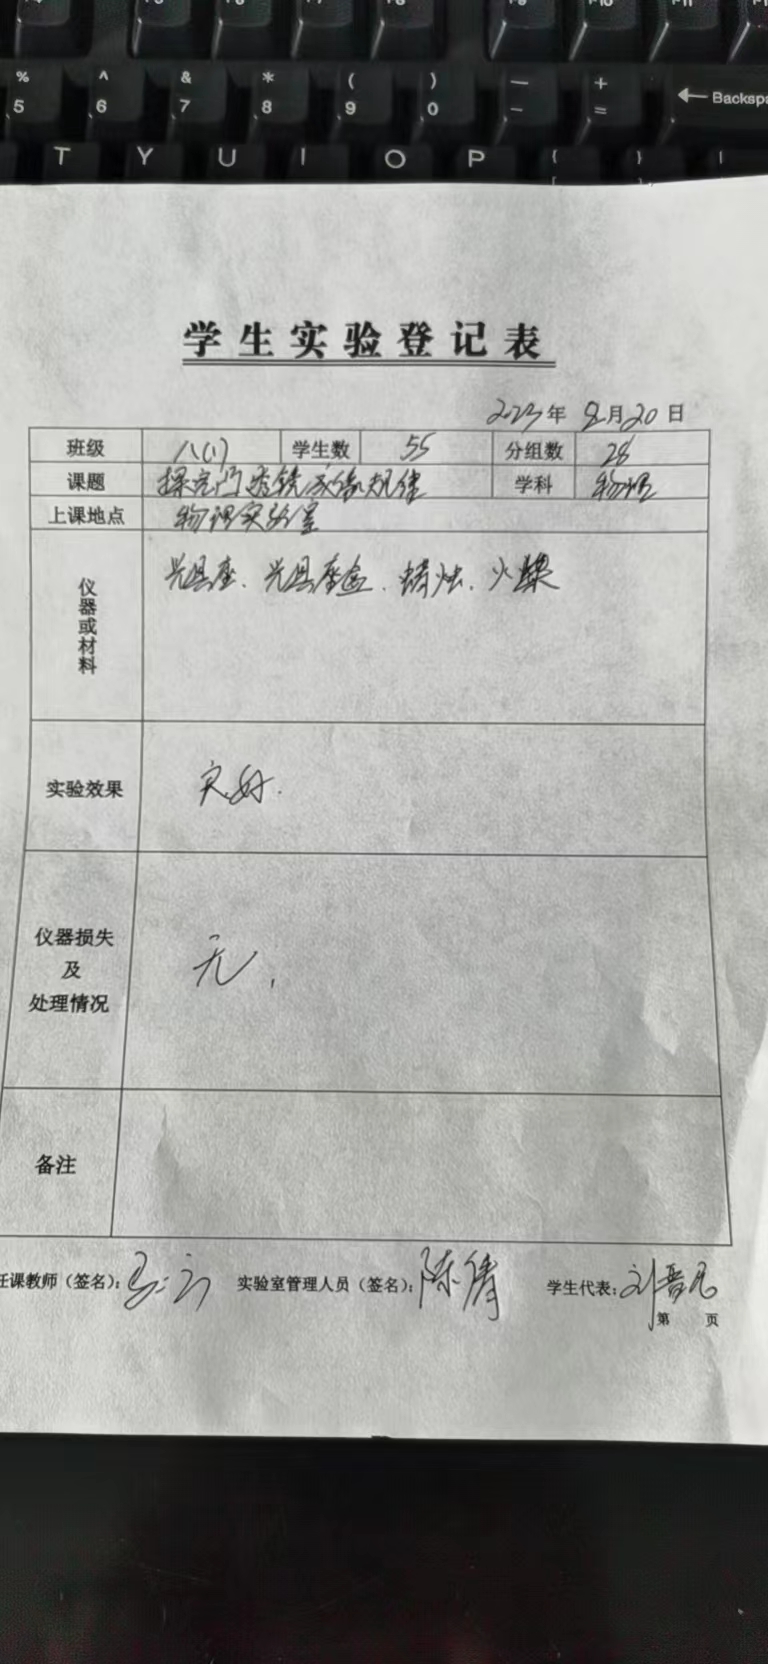 % ^ & * ( ) — +
5 6 7 8 9 0 - = Backspa
T Y U I O P { } |
学生实验登记表
2023年 月20日
班级 八(1) 学生数 55 分组数 28
课题 探究凸透镜成像规律 学科 物理
上课地点 物理实验室
仪器或材料 光具座、光具座盒、蜡烛、火柴
实验效果 良好.
仪器损失
及 无.
处理情况
备注
任课教师（签名）： 实验室管理人员（签名）：陈倩 学生代表：刘晋
第 页